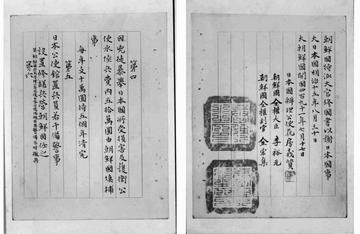 第四
因兇徒暴擧日本國所受損害及護衛公
使水陸兵費內五拾萬圓由朝鮮國塡補
事
每年支十萬圓待五個年清完
第五
日本公使館置兵員若干備警事
設置修繕兵營朝鮮國任之
若朝鮮國兵民守律一年之後日本公使視做不要警備不妨撤兵
第六
朝鮮國特派大官修國書以謝日本國事
大日本國明治十五年八月三十日
大朝鮮國開國四百九十一年七月十七日
日本國辨理公使花房義質
朝鮮國全權大臣 李裕元
朝鮮國全權副官 金宏集